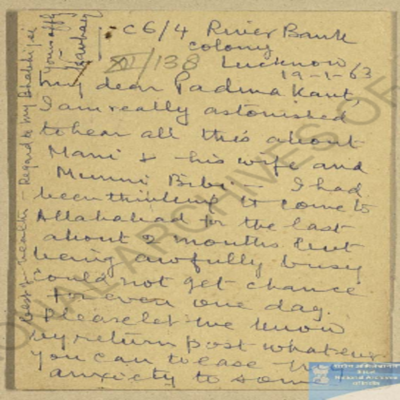 C 6/4 River Bank
colony
XII/138 Lucknow
19-1-63
My dear Padma Kant,
I am really astonished
to hear all this about
Mani & his wife and
Munni Bibi. — I had
been thinking to come to
Allahabad for the last
about 2 months but
being awfully busy
could not get chance
for even one day.
Please let me know
by return post whatever
you can to ease
anxiety to some
best of health - Regards to my Bhabhiji
Yours affly